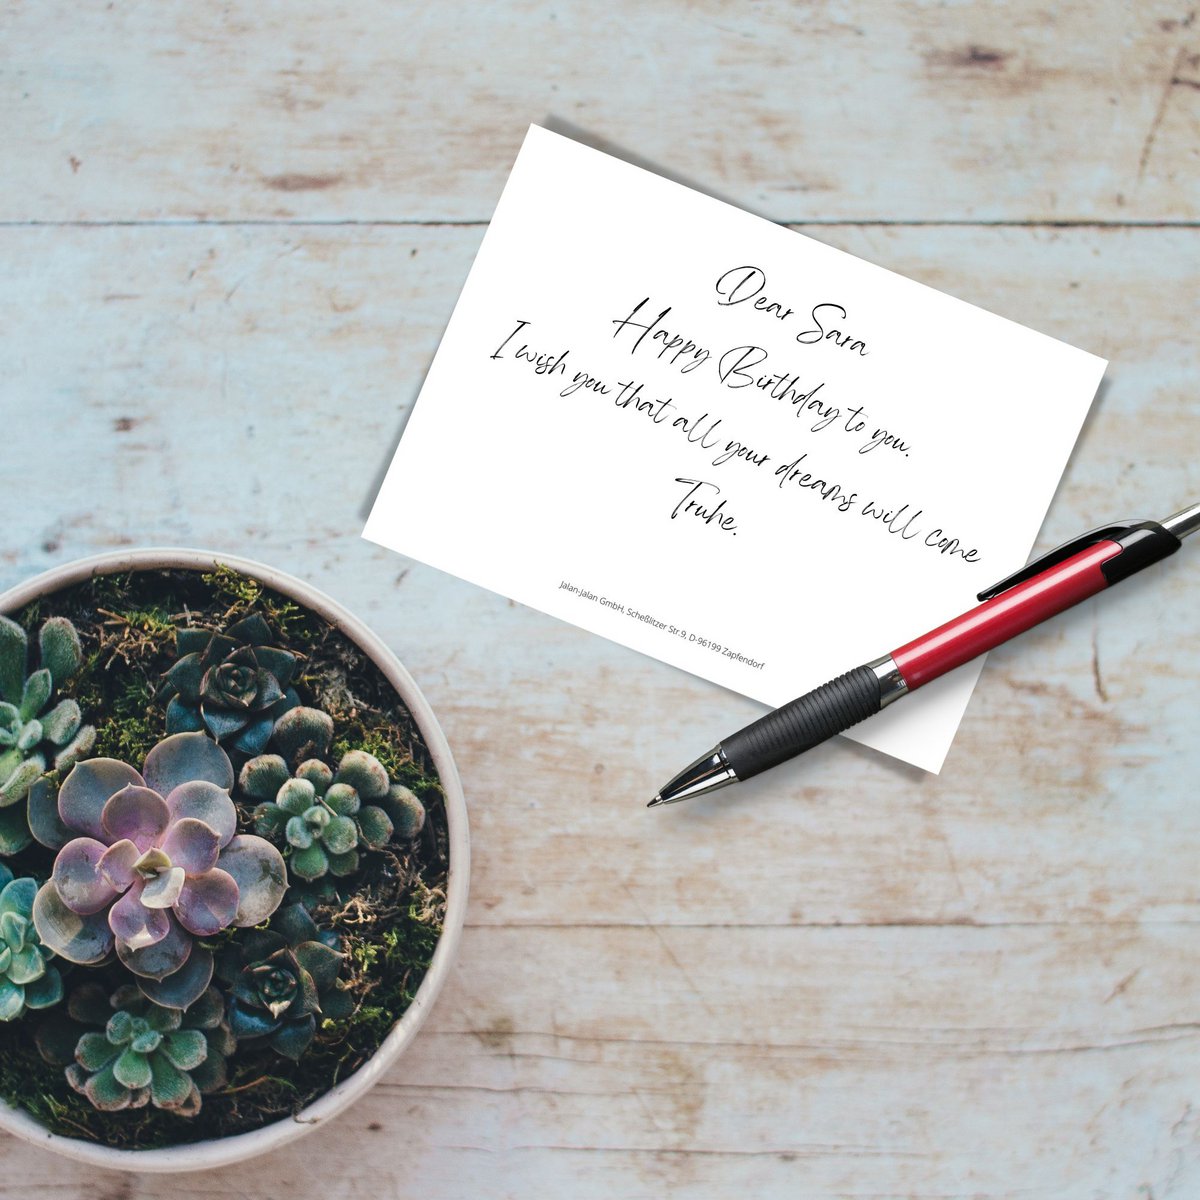 Dear Sara
Happy Birthday to you.
I wish you that all your dreams will come
Truhe.
Jalan-Jalan GmbH, Scheßlitzer Str.9, D-96199 Zapfendorf